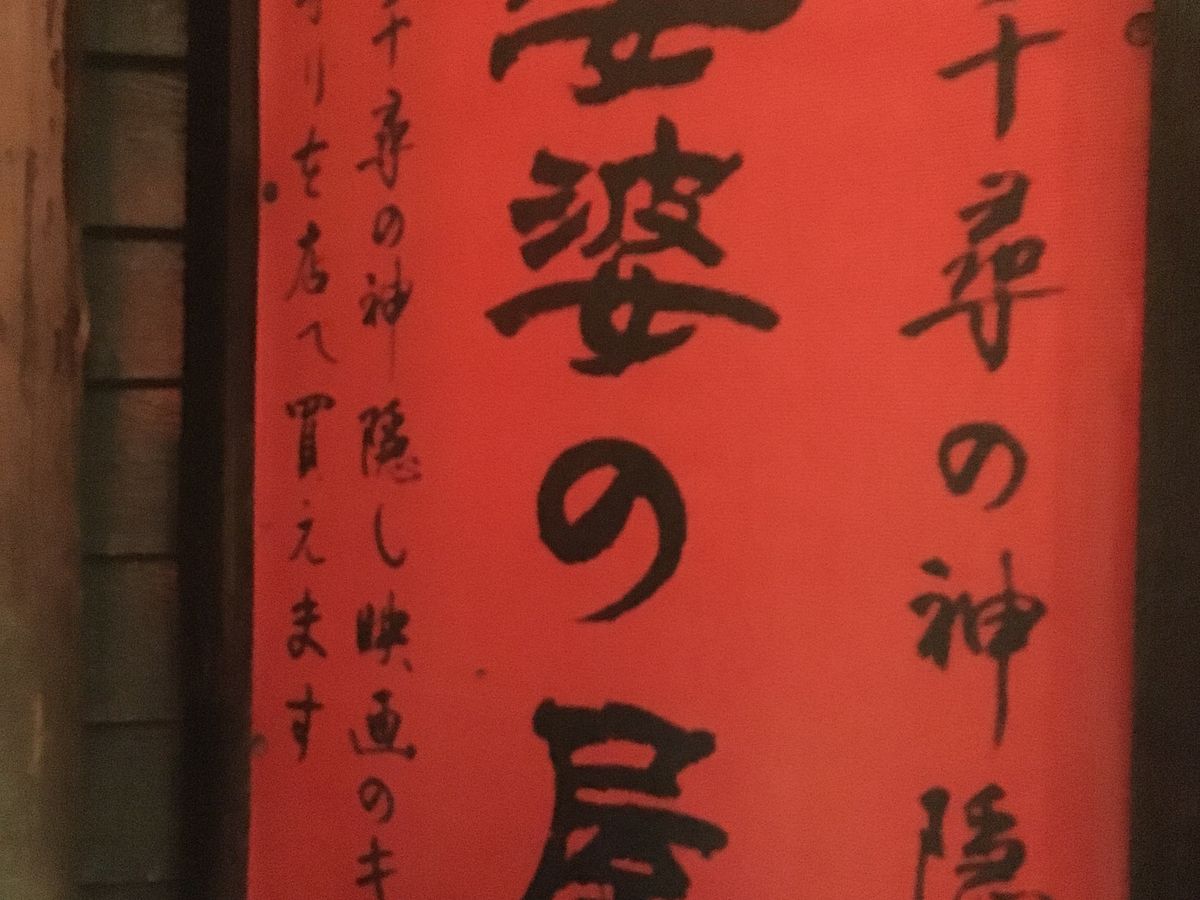 千尋の神隠
婆の屋
千尋の神隠し映画のキ
りを店て買えます